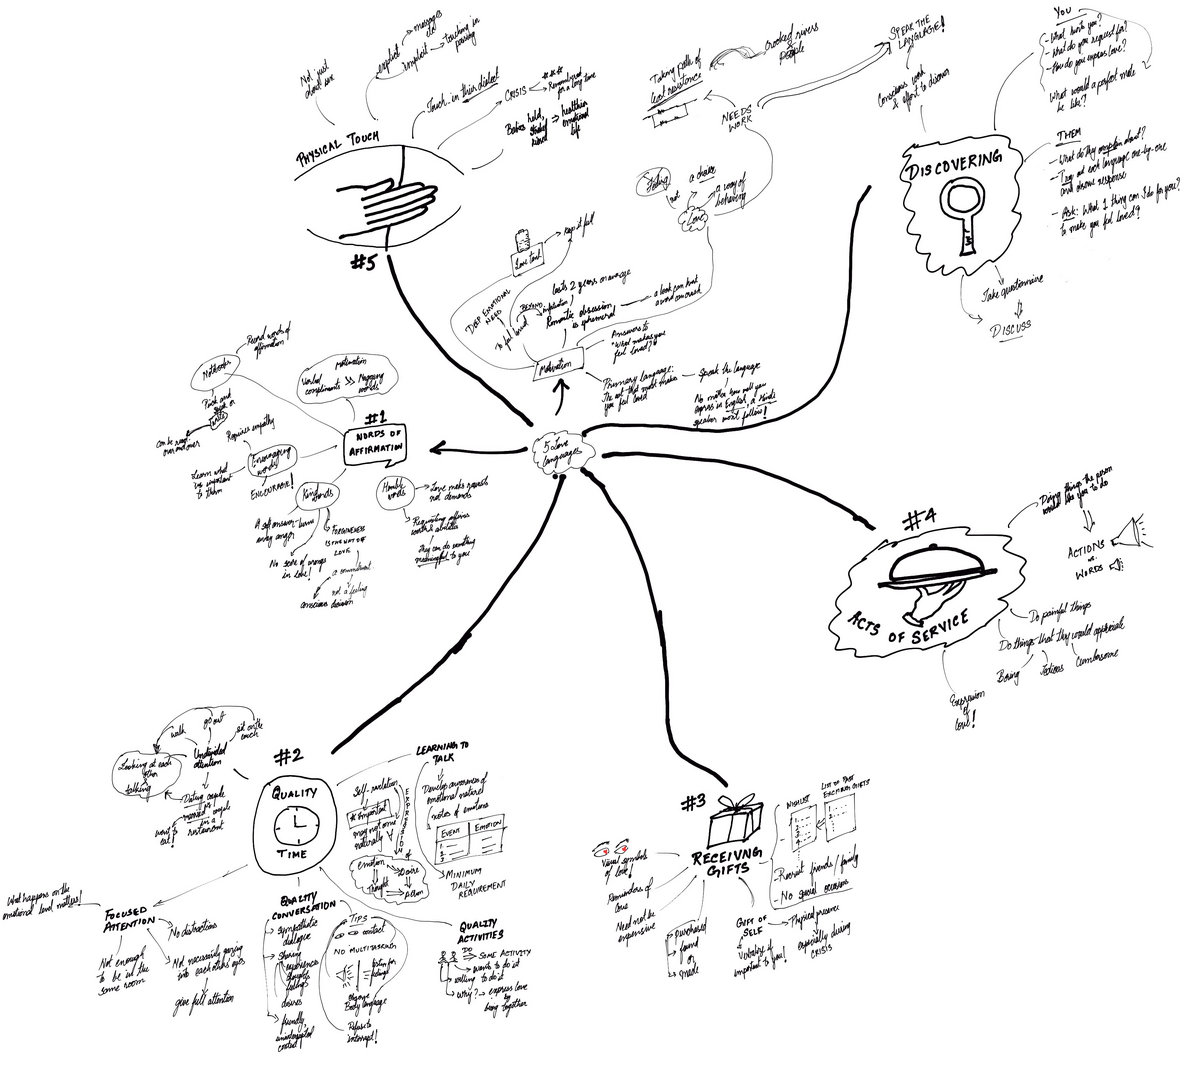 5 Love
Languages
Motivation
DEEP EMOTIONAL
NEED
Love tank
Keep it full
To feel loved
BEYOND
infatuation
lasts 2 years on average
Romantic obsession
is ephemeral
Answers to
"What makes you
feel loved?"
Primary language:
The one that most makes
you feel loved
Speak the language
No matter how well you
express in English, a Hindi
speaker won't follow!
Love
Feeling
not
a choice
a way of
behaving
NEEDS
WORK
Taking path of
least resistance
Crooked rivers
&
people
SPEAK THE
LANGUAGE!
DISCOVERING
Conscious work
& effort to discover
YOU
- What hurts you?
- What do you request for?
- How do you express love?
What would a perfect mate
be like?
THEM
- What do they complain about?
- Try out each language one-by-one
and observe response
- Ask: What 1 thing can I do for you?
to make you feel loved?
Take questionnaire
DISCUSS
#1
WORDS OF
AFFIRMATION
Motivation
Verbal
compliments >> Nagging
words
Notebooks
Record words of
affirmation
can be read
over and over
Encouraging
words
Requires empathy
Learn what
is important
to them
ENCOURAGE!
Kind words
A soft answer turns
away anger
No score of wrongs
in love!
FORGIVENESS
IS THE WAY OF
LOVE
a commitment
not a feeling
conscious decision
Humble
words
Love makes requests
not demands
Requesting affirms
worth & abilities
They can do something
meaningful to you!
#2
QUALITY
TIME
Undivided
attention
walk
go out
sit on the
couch
Looking at each
other
&
talking
Dating couple
vs
married couple
in a
restaurant
FOCUSED
ATTENTION
What happens on the
emotional level matters!
No distractions
Not enough
to be in the
same room
Not necessarily gazing
into each other's eyes
give full attention
QUALITY
CONVERSATION
sympathetic
dialogue
sharing
experiences
thoughts
feelings
desires
friendly,
uninterrupted
context
TIPS
contact
NO MULTITASKING
listen for
feelings
observe
Body language
Refuse to
interrupt!
LEARNING TO
TALK
Self-revelation
* Important
may not come
naturally
EXPRESSION
of
emotion
Desire
Thought
Action
Develop awareness of
emotional nature
notes of emotions
EVENT
EMOTION
MINIMUM
DAILY
REQUIREMENT
QUALITY
ACTIVITIES
DO
SOME ACTIVITY
wants to do it
willing to do it
Why? → express love
by
being together
#3
RECEIVING
GIFTS
Visual symbols
of love!
Reminders of
love
Need not be
expensive
purchased
found
or
made
GIFT OF
SELF
Physical presence
especially during
CRISIS
Vocalize if
important to you!
WISHLIST
LIST OF PAST
EXCITING GIFTS
- Recruit friends / family
- No special occasions
#4
ACTS OF SERVICE
Doing things the person
would like you to do
ACTIONS
vs.
WORDS
Do painful things
Do things that they would appreciate
Boring
Tedious
Cumbersome
Expression
of
Love!
#5
PHYSICAL TOUCH
Not just
about sex
explicit
massages
etc
implicit
touching in
passing
Touch in their dialect
CRISIS
Remembered
for a long time
Babies held,
stroked
kissed
⇒ healthier
emotional
life